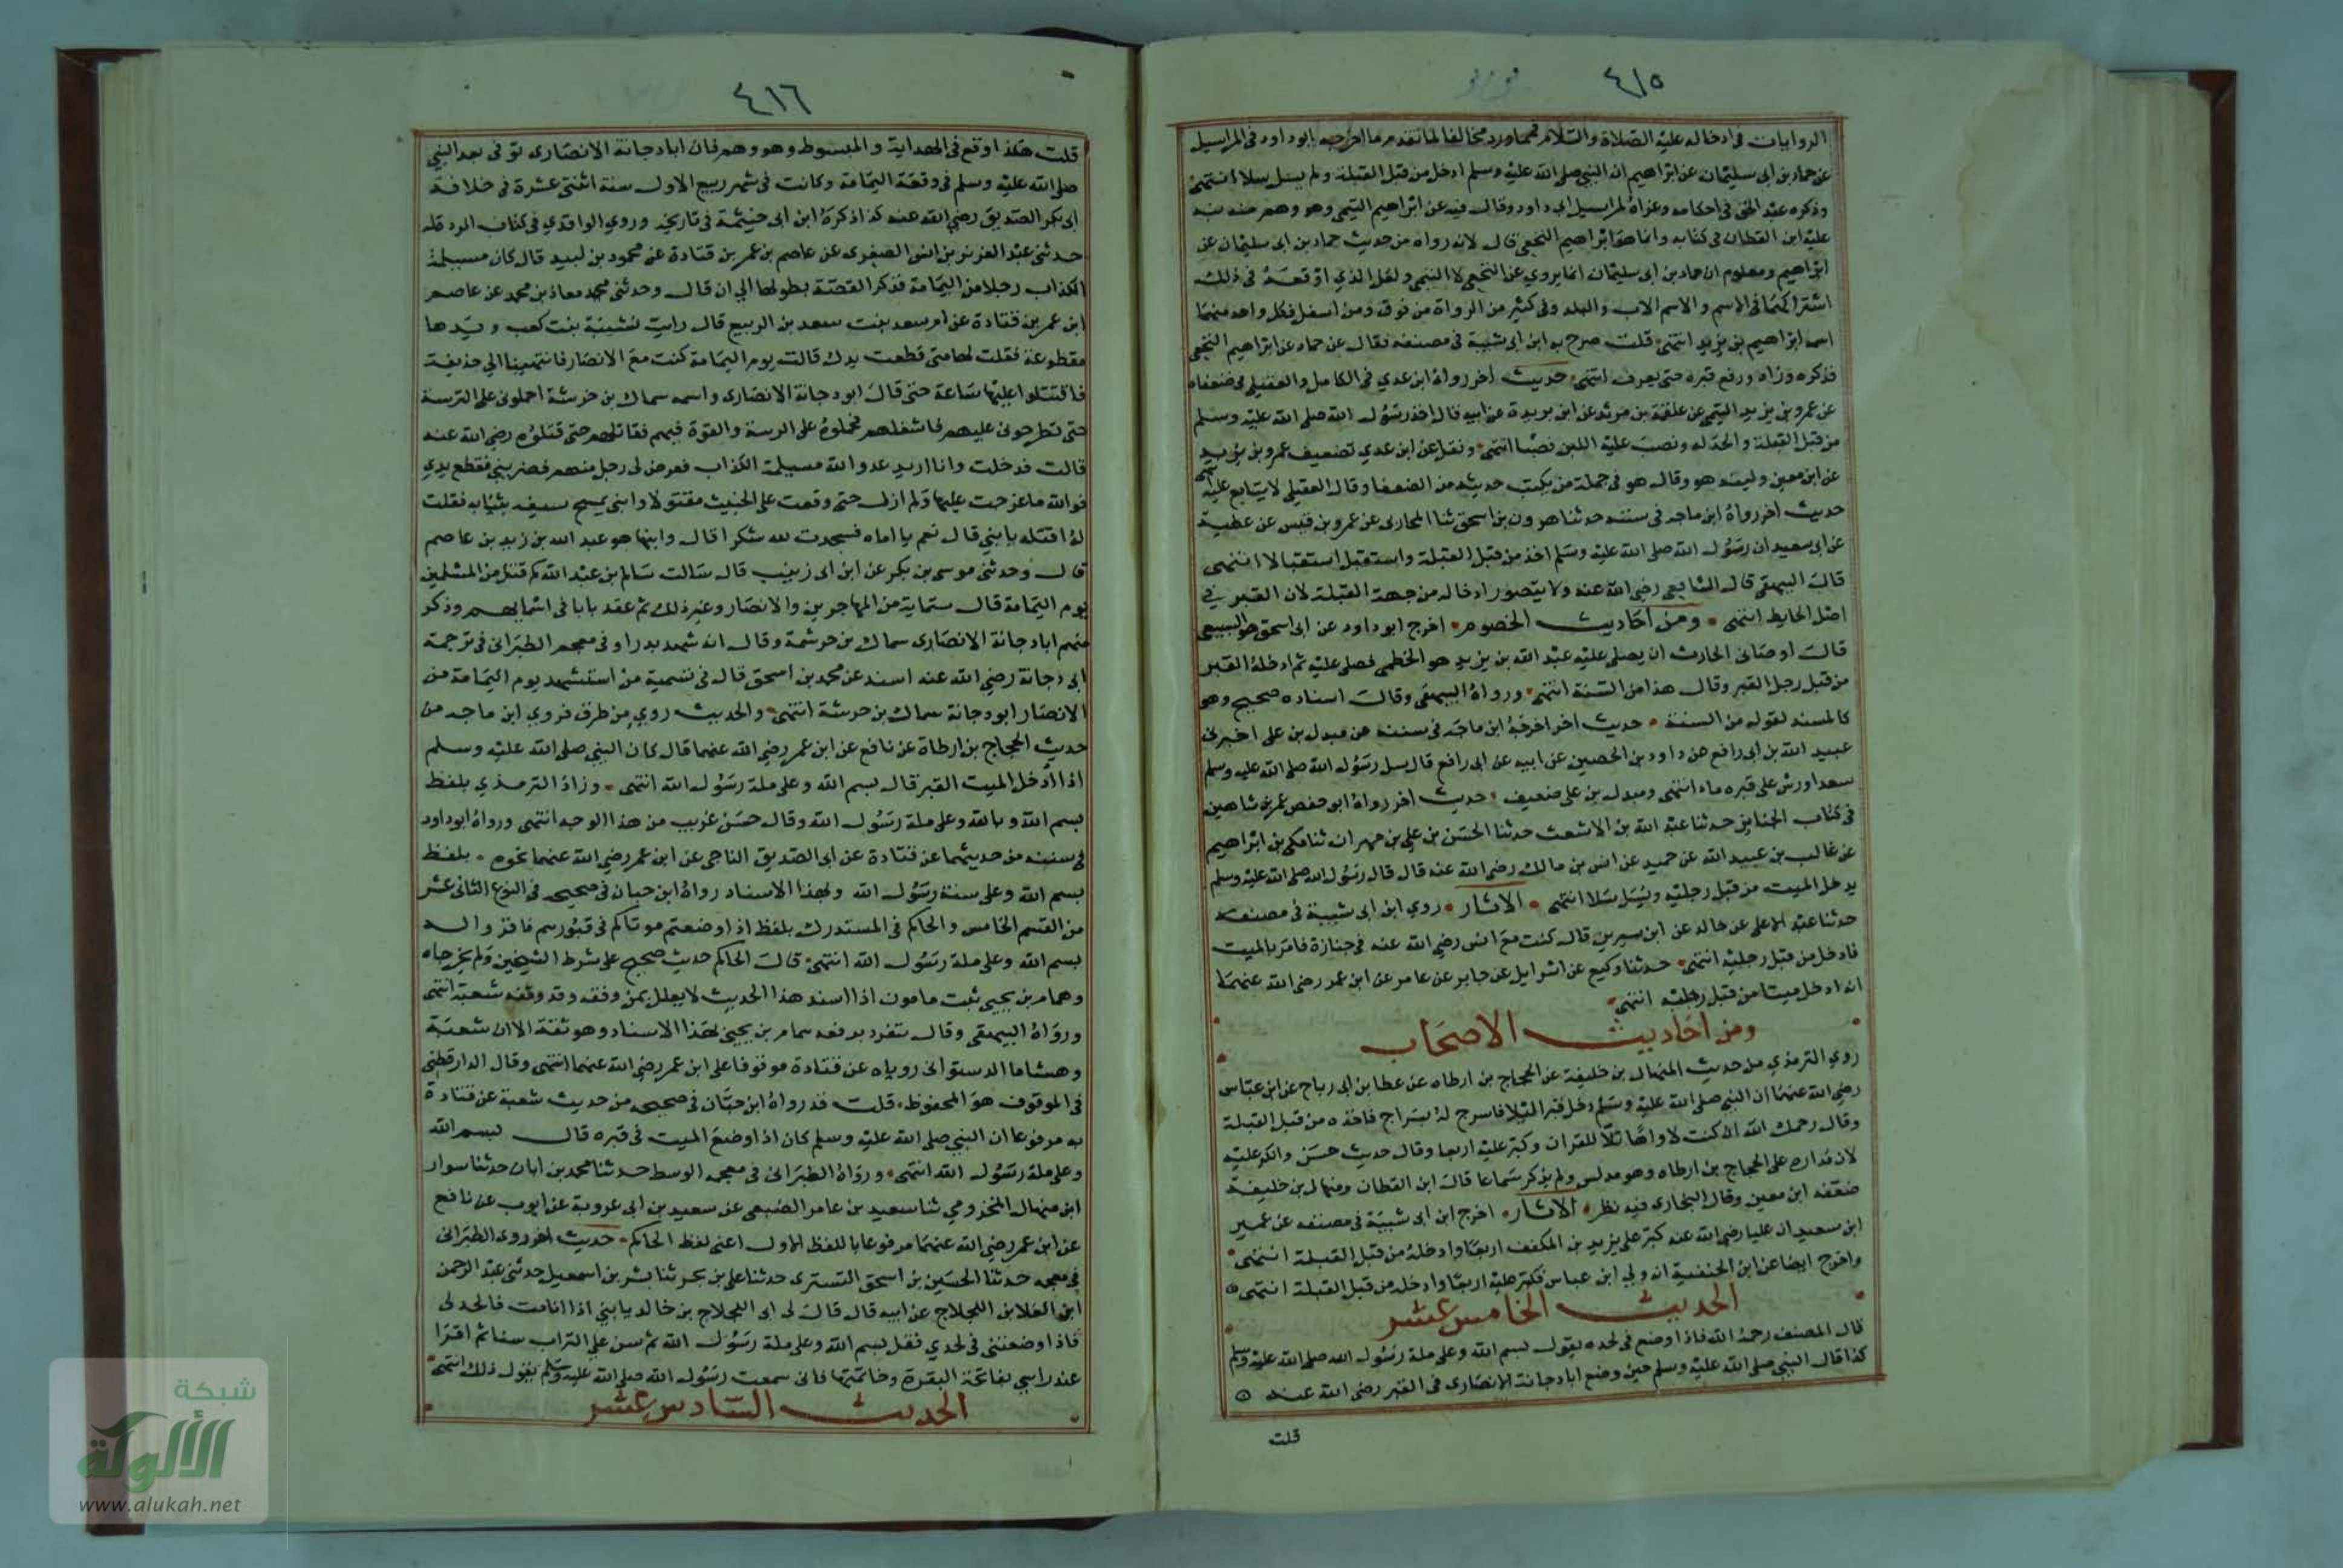 ٤١٥
الروايات في ادخاله عليه الصلاة والسلام فمما ورد مخالفا لما تقدم ما اخرجه ابوداود في المراسيل
عن حماد بن ابى سليمان عن ابراهيم ان النبي صلى الله عليه وسلم ادخل من قبل القبلة ولم يسل سلا انتهى
وذكره عبد الحق في احكامه وعزاه لمراسيل ابى داود وقال فيه عن ابراهيم التيمى وهو وهم منه نبه
عليه ابن القطان في كتابه وانما هو ابراهيم النخعى قال لانه رواه من حديث حماد بن ابى سليمان عن
ابراهيم ومعلوم ان حماد بن ابى سليمان انما يروي عن النخعى لا التيمى ولعل الذي اوقعه في ذلك
اشتراكهما في الاسم واسم الاب والبلد وفى كثير من الرواة من فوق ومن اسفل فكل واحد منهما
اسمه ابراهيم بن يزيد انتهى قلت صرح به ابن ابى شيبة في مصنفه فقال عن حماد عن ابراهيم النخعى
فذكره وزاد ورفع قبره حتى يعرف انتهى حديث اخر رواه ابن عدي في الكامل والعقيلى في ضعفاه
عن عمرو بن يزيد التيمى عن علقمة بن مرثد عن ابن بريدة عن ابيه قال اخذ رسول الله صلى الله عليه وسلم
من قبل القبلة والحد له ونصب عليه اللبن نصبا انتهى ونقل عن ابن عدي تضعيف عمرو بن يزيد
عن ابن معين ولينه هو وقال هو في جملة من يكتب حديثه من الضعفا وقال العقيلي لا يتابع عليه انتهى
حديث اخر رواه ابن ماجه في سننه حدثنا هرون بن اسحق ثنا المحاربى عن عمرو بن قيس عن عطية
عن ابى سعيد ان رسول الله صلى الله عليه وسلم اخذ من قبل القبلة واستقبل استقبالا انتهى
قال البيهقى قال الشافعى رضى الله عنه ولا يتصور ادخاله من جهة القبلة لان القبر في
اصل الحايط انتهى ومن احاديث الخصوم اخرج ابوداود عن ابى اسحق هو السبيعى
قال اوصانى الحارث ان يصلى عليه عبد الله بن يزيد هو الخطمى فصلى عليه ثم ادخله القبر
من قبل رجل القبر وقال هذا من السنة انتهى ورواه البيهقى وقال اسناده صحيح وهو
كالمسند لقوله من السنة حديث اخر اخرجه ابن ماجه في سننه عن مندل بن على اخبرنى
عبيد الله بن ابى رافع عن داود بن الحصين عن ابيه عن ابى رافع قال سل رسول الله صلى الله عليه وسلم
سعدا ورش على قبره ماء انتهى ومندل بن على ضعيف حديث اخر رواه ابو حفص عمر بن شاهين
في كتاب الجنايز حدثنا عبد الله بن الاشعث حدثنا الحسن بن على بن مهران ثنا مكى بن ابراهيم
عن غالب بن عبيد الله عن حميد عن انس بن مالك رضى الله عنه قال قال رسول الله صلى الله عليه وسلم
يدخل الميت من قبل رجليه ويسل سلا انتهى الاثار روي ابن ابى شيبة في مصنفه
حدثنا عبد الاعلى عن خالد عن ابن سيرين قال كنت مع انس رضى الله عنه في جنازة فامر بالميت
فادخل من قبل رجليه انتهى حدثنا وكيع عن اسرايل عن جابر عن عامر عن ابن عمر رضى الله عنهما
انه ادخل ميتا من قبل رجليه انتهى
ومن احاديث الاصحاب
روي الترمذي من حديث المنهال بن خليفة عن الحجاج بن ارطاه عن عطا بن ابى رباح عن ابن عباس
رضى الله عنهما ان النبي صلى الله عليه وسلم دخل قبرا ليلا فاسرج له سراج فاخذه من قبل القبلة
وقال رحمك الله ان كنت لاواها تلا للقران وكبر عليه اربعا وقال حديث حسن وانكر عليه
لان مداره على الحجاج بن ارطاه وهو مدلس ولم يذكر سماعا قال ابن القطان ومنهال بن خليفة
ضعفه ابن معين وقال البخارى فيه نظر الاثار اخرج ابن ابى شيبة في مصنفه عن عمير
ابن سعيد ان عليا رضى الله عنه كبر على يزيد بن المكفف اربعا وادخله من قبل القبلة انتهى
واخرج ايضا عن ابن الحنفية انه ولى ابن عباس فكبر عليه اربعا وادخله من قبل القبلة انتهى
الحديث الخامس عشر
قال المصنف رحمه الله فاذا وضع في لحده يقول بسم الله وعلى ملة رسول الله صلى الله عليه وسلم
كذا قال النبي صلى الله عليه وسلم حين وضع ابا دجانة الانصارى في القبر رضى الله عنه
قلت
٤١٦
قلت هكذا وقع في الهداية والمبسوط وهو وهم فان ابا دجانة الانصارى توفى بعد النبي
صلى الله عليه وسلم في وقعة اليمامة وكانت في شهر ربيع الاول سنة اثنتى عشرة في خلافة
ابى بكر الصديق رضى الله عنه كذا ذكره ابن ابى خيثمة في تاريخه وروي الواقدي في كتاب الرد قال
حدثنى عبد العزيز بن انس الصفرى عن عاصم بن عمر بن قتادة عن محمود بن لبيد قال كان مسيلمة
الكذاب رجلا من اليمامة فذكر القصة بطولها الى ان قال وحدثنى محمد معاذ بن محمد عن عاصم
ابن عمر بن قتادة عن ام سعد بنت سعد بن الربيع قال رايت نسيبة بنت كعب ويدها
مقطوعة فقلت لها متى قطعت يدك قالت يوم اليمامة كنت مع الانصار فانتهينا الى حذيفة
فاقتتلوا عليها ساعة حتى قال ابو دجانة الانصارى واسمه سماك بن خرشة احملونى على الترسة
حتى تطرحونى عليهم فاشغلهم فحملوه على الرسة والقوة فيهم فقاتلهم حتى قتلوه رضى الله عنه
قالت فدخلت وانا اريد عدو الله مسيلمة الكذاب فعرض لى رجل منهم فضربنى فقطع يدي
فوالله ما عرجت عليها ولم ازل حتى وقعت على الخبيث مقتولا وابنى يمسح سيفه بثيابه فقلت
له اقتلته يا بني قال نعم يا اماه فسجدت لله شكرا قال وابنها هو عبد الله بن زيد بن عاصم
قال وحدثنى موسى بن بكر عن ابن ابى زينب قال سالت سالم بن عبد الله كم قتل من المسلمين
يوم اليمامة قال ستماية من المهاجرين والانصار وغير ذلك ثم عقد بابا في اسمايهم وذكر
منهم ابا دجانة الانصارى سماك بن خرشة وقال انه شهد بدرا وفى معجم الطبرانى في ترجمة
ابى دجانة رضى الله عنه اسند عن محمد بن اسحق قال في تسمية من استشهد يوم اليمامة من
الانصار ابو دجانة سماك بن خرشة انتهى والحديث روي من طرق فروي ابن ماجه من
حديث الحجاج بن ارطاة عن نافع عن ابن عمر رضى الله عنهما قال كان النبي صلى الله عليه وسلم
اذا ادخل الميت القبر قال بسم الله وعلى ملة رسول الله انتهى وزاد الترمذي بلفظ
بسم الله وبالله وعلى ملة رسول الله وقال حسن غريب من هذا الوجه انتهى ورواه ابوداود
في سننه من حديثهما عن قتادة عن ابى الصديق الناجى عن ابن عمر رضى الله عنهما نحوه بلفظ
بسم الله وعلى سنة رسول الله وبهذا الاسناد رواه ابن حبان في صحيحه في النوع الثانى عشر
من القسم الخامس والحاكم في المستدرك بلفظ اذا وضعتم موتاكم في قبورهم فاقروا له
بسم الله وعلى ملة رسول الله انتهى قال الحاكم حديث صحيح على شرط الشيخين ولم يخرجاه
وهمام بن يحيى ثبت مامون اذا اسند هذا الحديث لا يعلل بمن وقفه وقد وقفه شعبة انتهى
ورواه البيهقى وقال تفرد برفعه همام بن يحيى بهذا الاسناد وهو ثقة الا ان شعبة
وهشاما الدستوانى روياه عن قتادة موقوفا على ابن عمر رضى الله عنهما انتهى وقال الدارقطنى
في الموقوف هو المحفوظ قلت قد رواه ابن حبان في صحيحه من حديث شعبة عن قتادة
به مرفوعا ان النبي صلى الله عليه وسلم كان اذا وضع الميت في قبره قال بسم الله
وعلى ملة رسول الله انتهى ورواه الطبرانى في معجمه الوسط حدثنا محمد بن ابان حدثنا سوار
ابن منهال المخذومي ثنا سعيد بن عامر الضبعى عن سعيد بن ابى عروبة عن ايوب عن نافع
عن ابن عمر رضى الله عنهما مرفوعا باللفظ الاول اعنى لفظ الحاكم حديث اخر روى الطبرانى
في معجمه حدثنا الحسين بن اسحق التسترى حدثنا على بن بحر ثنا بشر بن اسمعيل حدثنى عبد الرحمن
ابن العلا بن اللجلاج عن ابيه قال قال لى ابى اللجلاج بن خالد يا بني اذا انا مت فالحد لى
فاذا وضعتنى في لحدي فقل بسم الله وعلى ملة رسول الله ثم سن على التراب سنا ثم اقرا
عند راسي بفاتحة البقرة وخاتمتها فانى سمعت رسول الله صلى الله عليه وسلم يقول ذلك انتهى
الحديث السادس عشر
شبكة
الألوكة
www.alukah.net